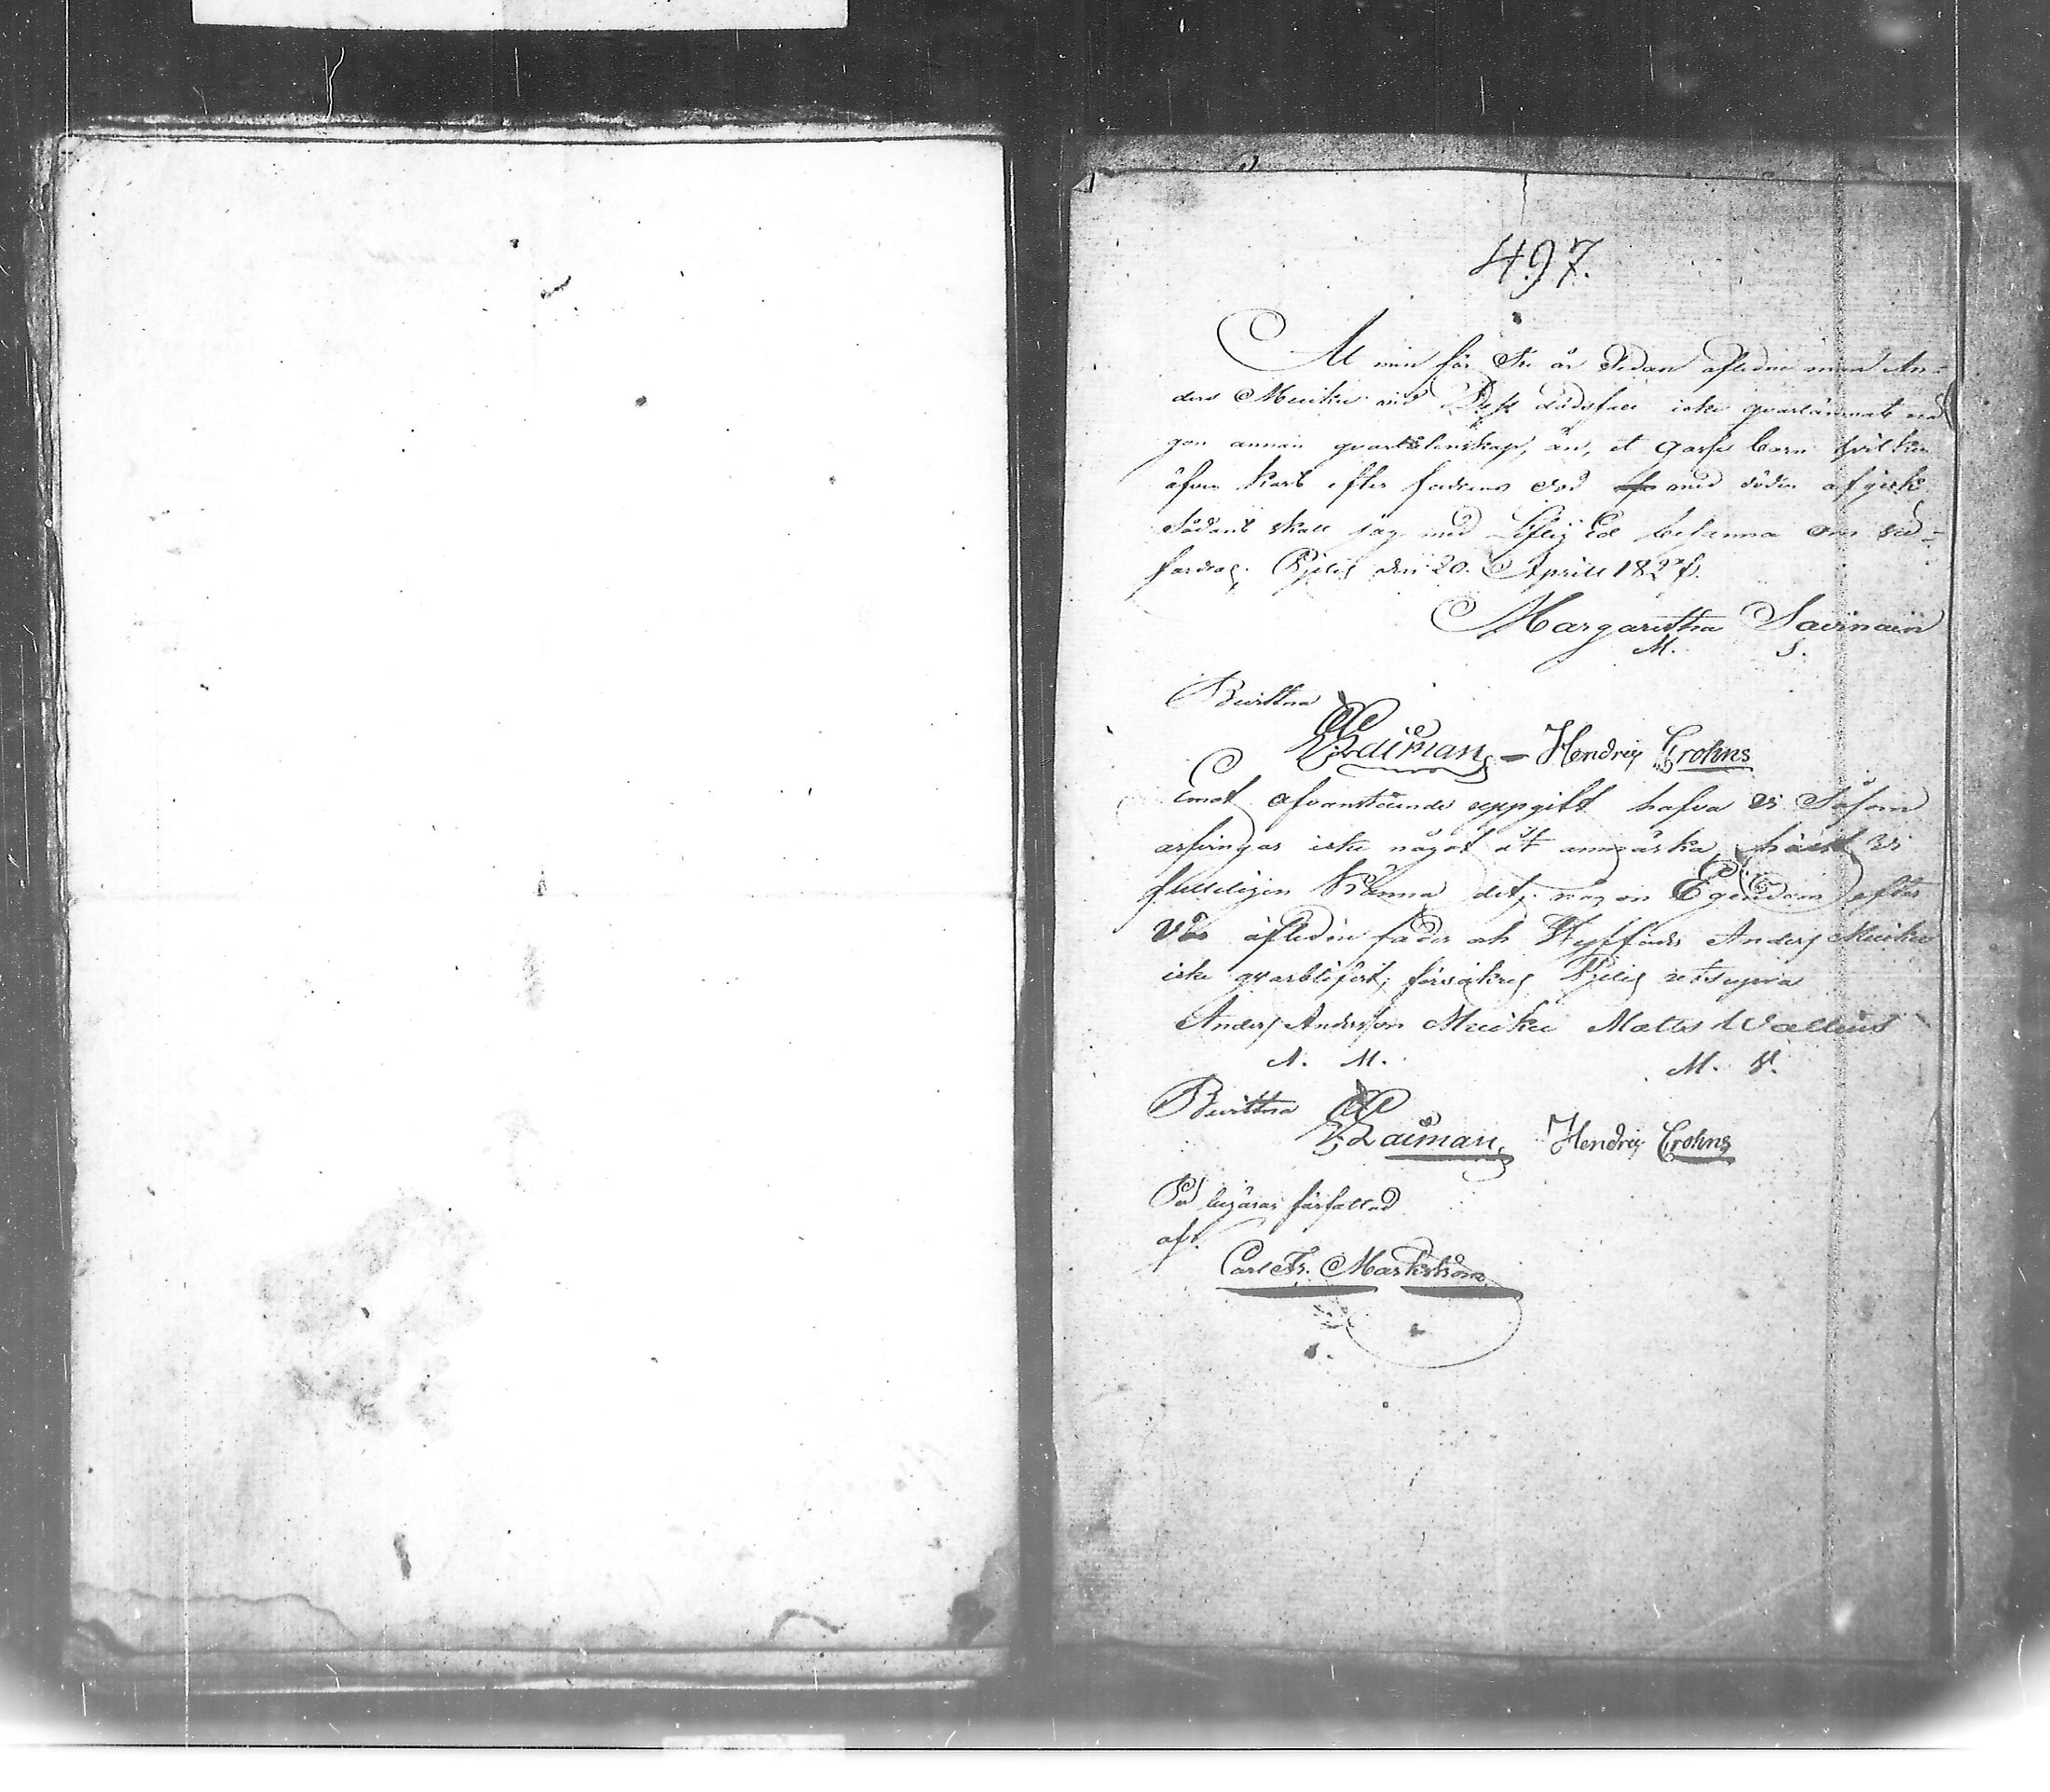 497.
At min för Tre år Sedan afledne man An-
ders Muiku vid Dess dödsfall icke qvarlämnat nå
gon annan qvarlåtenskap, än, et Gosse barn hvilken
äfven kort efter fadrens död med döden afgick
Sådant skall jag med Liflig Ed bekänna om så
fordras. den 20. Aprill 182
Margaretha Savinain
M. S.
Bevittna
Laiman - Hendrig Crohns
Emot ofvanstående uppgift hafva vi Såsom
arfvingar icke något at anmärka, hälst vi
fulleligen Känna det, någon Egendom efter
Vår afledin fader och Styffader Anders Muiku
icke qvarblifvit, försäkras utsupra
Anders Andersson Muiku Matts Wallius
A. M. M. V.
Bevittna
Laiman Hendrig Crohns
På begäran författad
af.
Carl Fr. Markström